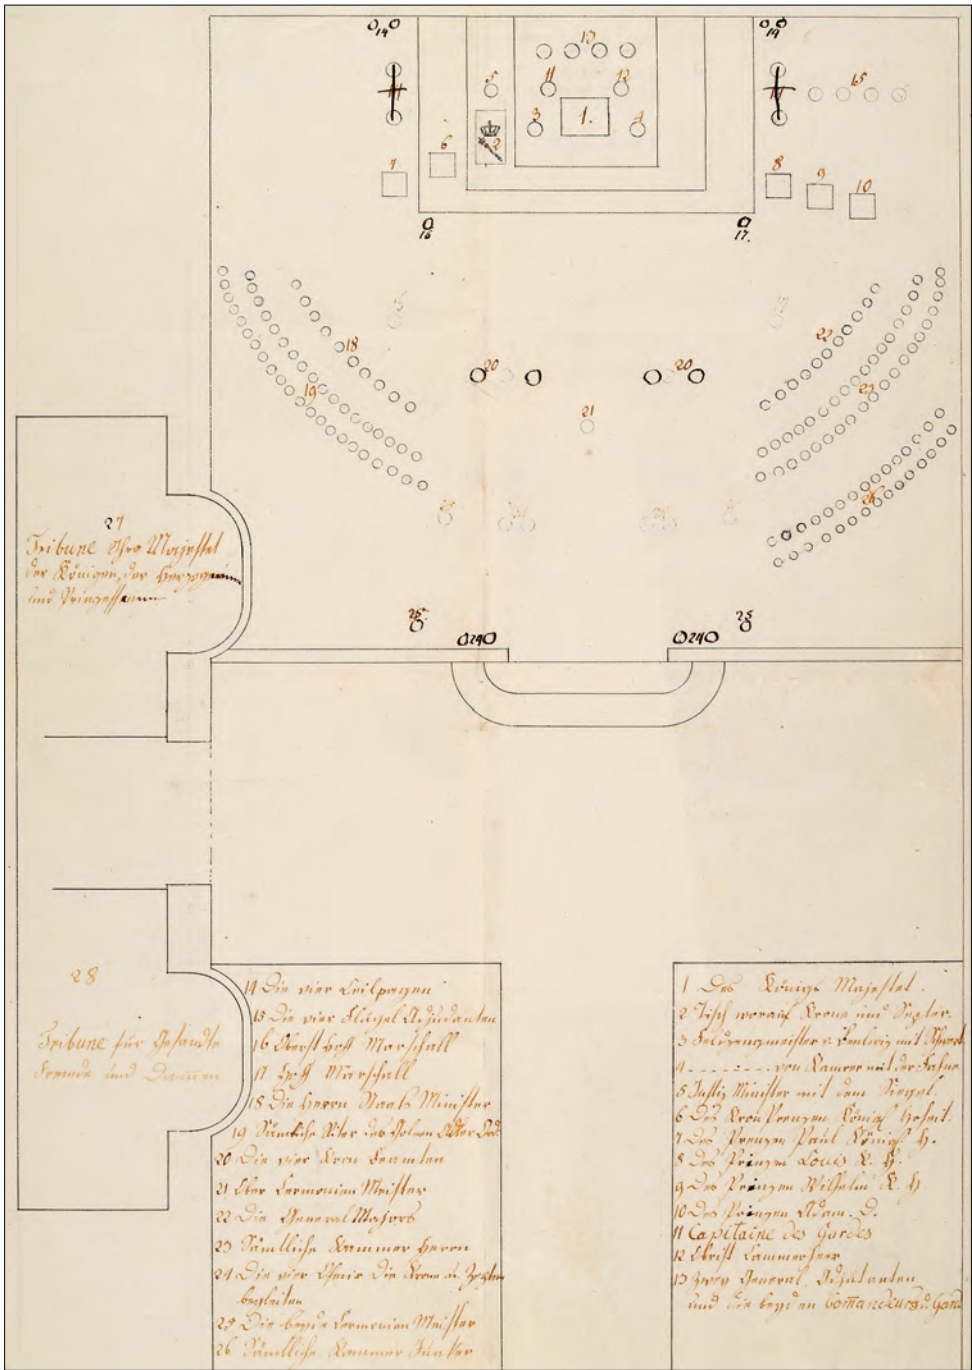 14 14
13
5 11 12 65
3 1. 4
2
6
7 8 9 10
16 17.
18 22
20 20
19 21 23
26
25. 25
24 24
27
Tribune Ihro Majestet
der Königen, der Herzoginnen
und Prinzessinnen
28
Tribune für Gesandte
Fremde und Damen
14 Die vier Leibpagen
15 Die vier Flügel Adjudanten
16 Oberst Hoff Marschall
17 Hoff Marschall
18 Die Herrn Staats Minister
19 Sämtliche Riter des Goldnen Adler Ord.
20 Die vier Kron Beamten
21 Ober Cermonien Meister
22 Die General Majors
23 Sämtliche Kammer Herrn
24 Die vier die Krone u. Zepter
begleiten
25 Die beyde Cermonien Meister
26 Sämtliche Kammer Junker
1 Des Königs Majestet.
2 Tisch worauf Krone und Septer.
3 Feldzeugmeister v. mit Schwert
4 - - - - - - - von Kamrer mit der Fahne
5 Justiz Minister mit dem Siegel.
6 Des Kron Prenzen Königl. Hoheit.
7 Des Prenzen Paul Königl. H.
8 Des Prinzen Louis K. H.
9 Des Prinzen Wilhelm K. H
10 Des Prinzen Adam. D.
11 Capitaine des Gardes
12 Obrist Cammerherr
13 Zwey General Adjutanten
und die beyden Comandeurs d. Gard